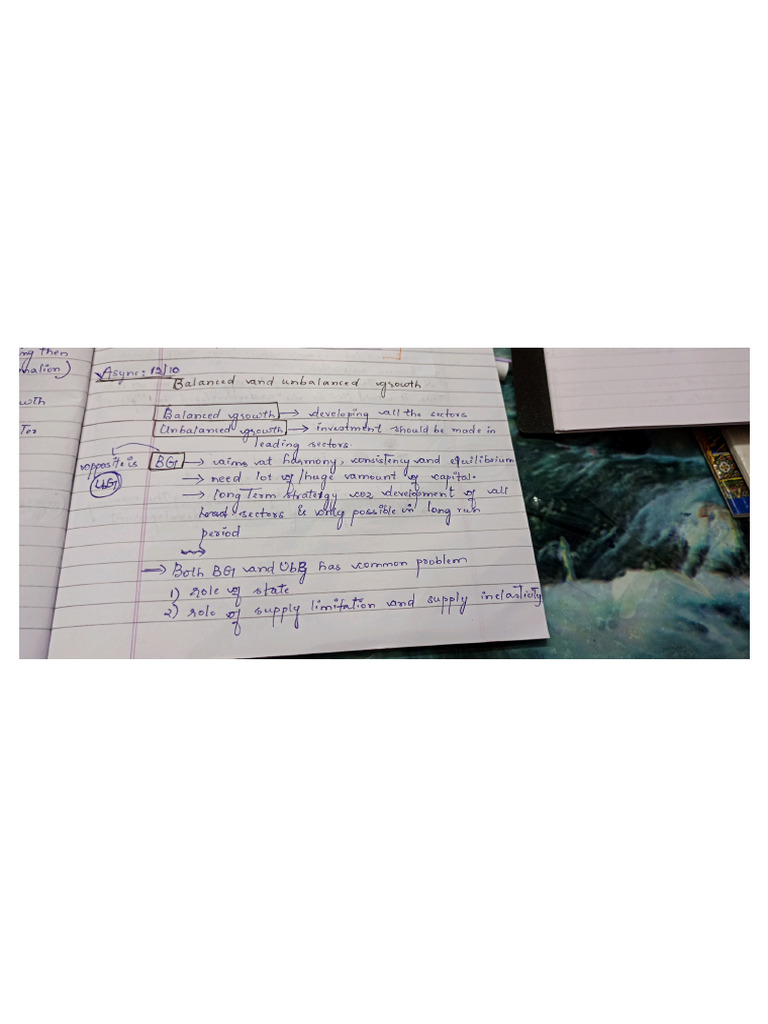 Async: 12/10
Balanced and unbalanced growth
Balanced growth → developing all the sectors
Unbalanced growth → investment should be made in
leading sectors.
opposite is
UbG
BG → aims at harmony, consistency and equilibrium
→ need lot of/huge amount of capital.
→ long Term strategy coz development of all
sectors & only possible in long run
period
→ Both BG and UbG has common problem
1) role of state
2) role of supply limitation and supply inelasticity
ng then
mation)
wth
Ter